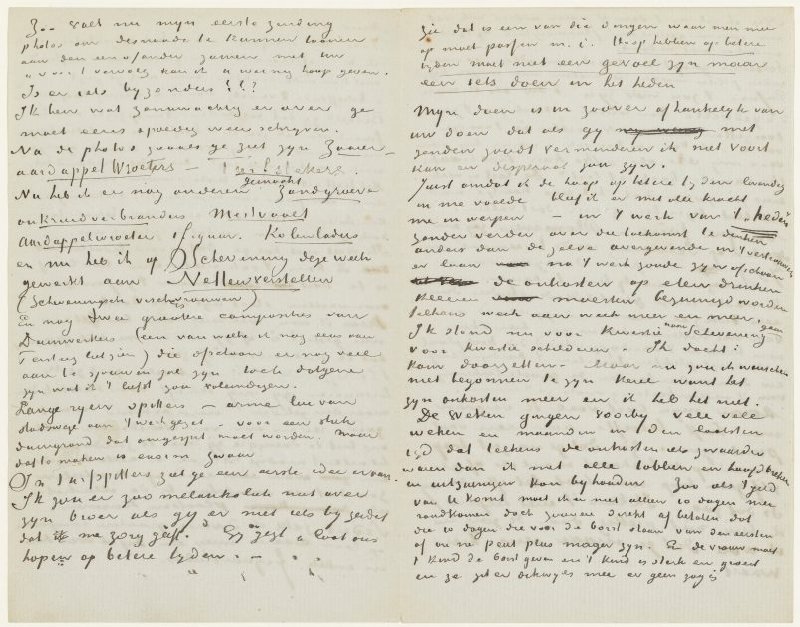 Zoo valt nu mijn eerste zending
photos om desnoods te kunnen toonen
aan den een of ander samen met Uw
Is er iets byzonders ???
Ik ben wat zenuwachtig er over ge
moet eens spoedig weer schrijven.
Na de photos zooals ge ziet zijn Zaaier –
aardappelwroeters – Turfstekers.
gemaakt
Nu heb ik er nog anderen Zandgroeve
onkruidverbranden Mestvaalt
Aardappelwroeter 1 figuur. Kolenladers
en nu heb ik op Schevening deze week
gewerkt aan Nettenverstellen
(Scheveningsche vischvrouwen)
En nog twee grootere composities van
Duinwerkers (een van welke ik nog eens aan
liet zien) die ofschoon er nog veel
aan te zal zijn toch datgene
zijn wat ik 't liefst zou voleindigen.
Lange ryen spitters – arme lui van
stadswege aan 't werk gezet – voor een stuk
duingrond dat omgespit moet worden. Maar
dat te maken is enorm zwaar
In Turfspitters ziet ge een eerste idee ervan.
Ik zou er zoo melancholiek niet over
zijn broer als gij er niet iets by gezegd
dat me zorg geeft. Gij zegt laat ons
hopen op betere tyden. –
Zie dat is een van die dingen waar men mee
op moet passen m.i. Hoop hebben op betere
tyden moet niet een gevoel zijn maar
een iets doen in het heden
Myn doen is in zoover afhankelyk van
uw doen dat als gy met
zenden zoudt verminderen ik niet voort
kan en desperaat zou zyn.
Juist omdat ik de hoop op betere tyden levendig
in me voelde bleef ik er met alle kracht
me in werpen – in 't werk van 't heden
zonder verder over die toekomst te denken
anders dan de zelve overgevende in 't vertrouwen
er loon na 't werk zoude zyn ofschoon
de onkosten op eten drinken
kleeren moesten bezuinigd worden
telkens week aan week meer en meer.
Ik stond nu voor kwestie naar Schevening gaan
voor kwestie schilderen. Ik dacht:
kom doorzetten. Maar nu zou ik wenschen
niet begonnen te zyn kerel want het
zyn onkosten meer en ik heb het niet.
De weken gingen voorby vele vele
weken en maanden in den laatsten
tyd dat telkens de onkosten iets zwaarder
waren dan ik met alle tobben en hoofdbreken
en uitzuinigen kon byhouden Zoo als 't geld
van U komt moet ik er niet alleen 10 dagen mee
rondkomen doch zooveel direkt af betalen dat
die 10 dagen die voor de borst staan van den eersten
af un peu plus mager zyn. En de vrouw moet
't kind de borst geven en 't kind is sterk en groeit
en ze zit er dikwyls mee er geen zog is